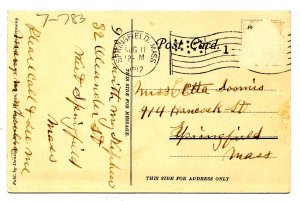 7-783
SPRINGFIELD, MASS.
AUG 11
12-M
1917
Post Card.
1
THIS SIDE FOR MESSAGE
North
32 Oleander St
West Springfield
Mass
Please call & see me
Miss Etta Loomis
914 Hancock St
Springfield
Mass
THIS SIDE FOR ADDRESS ONLY